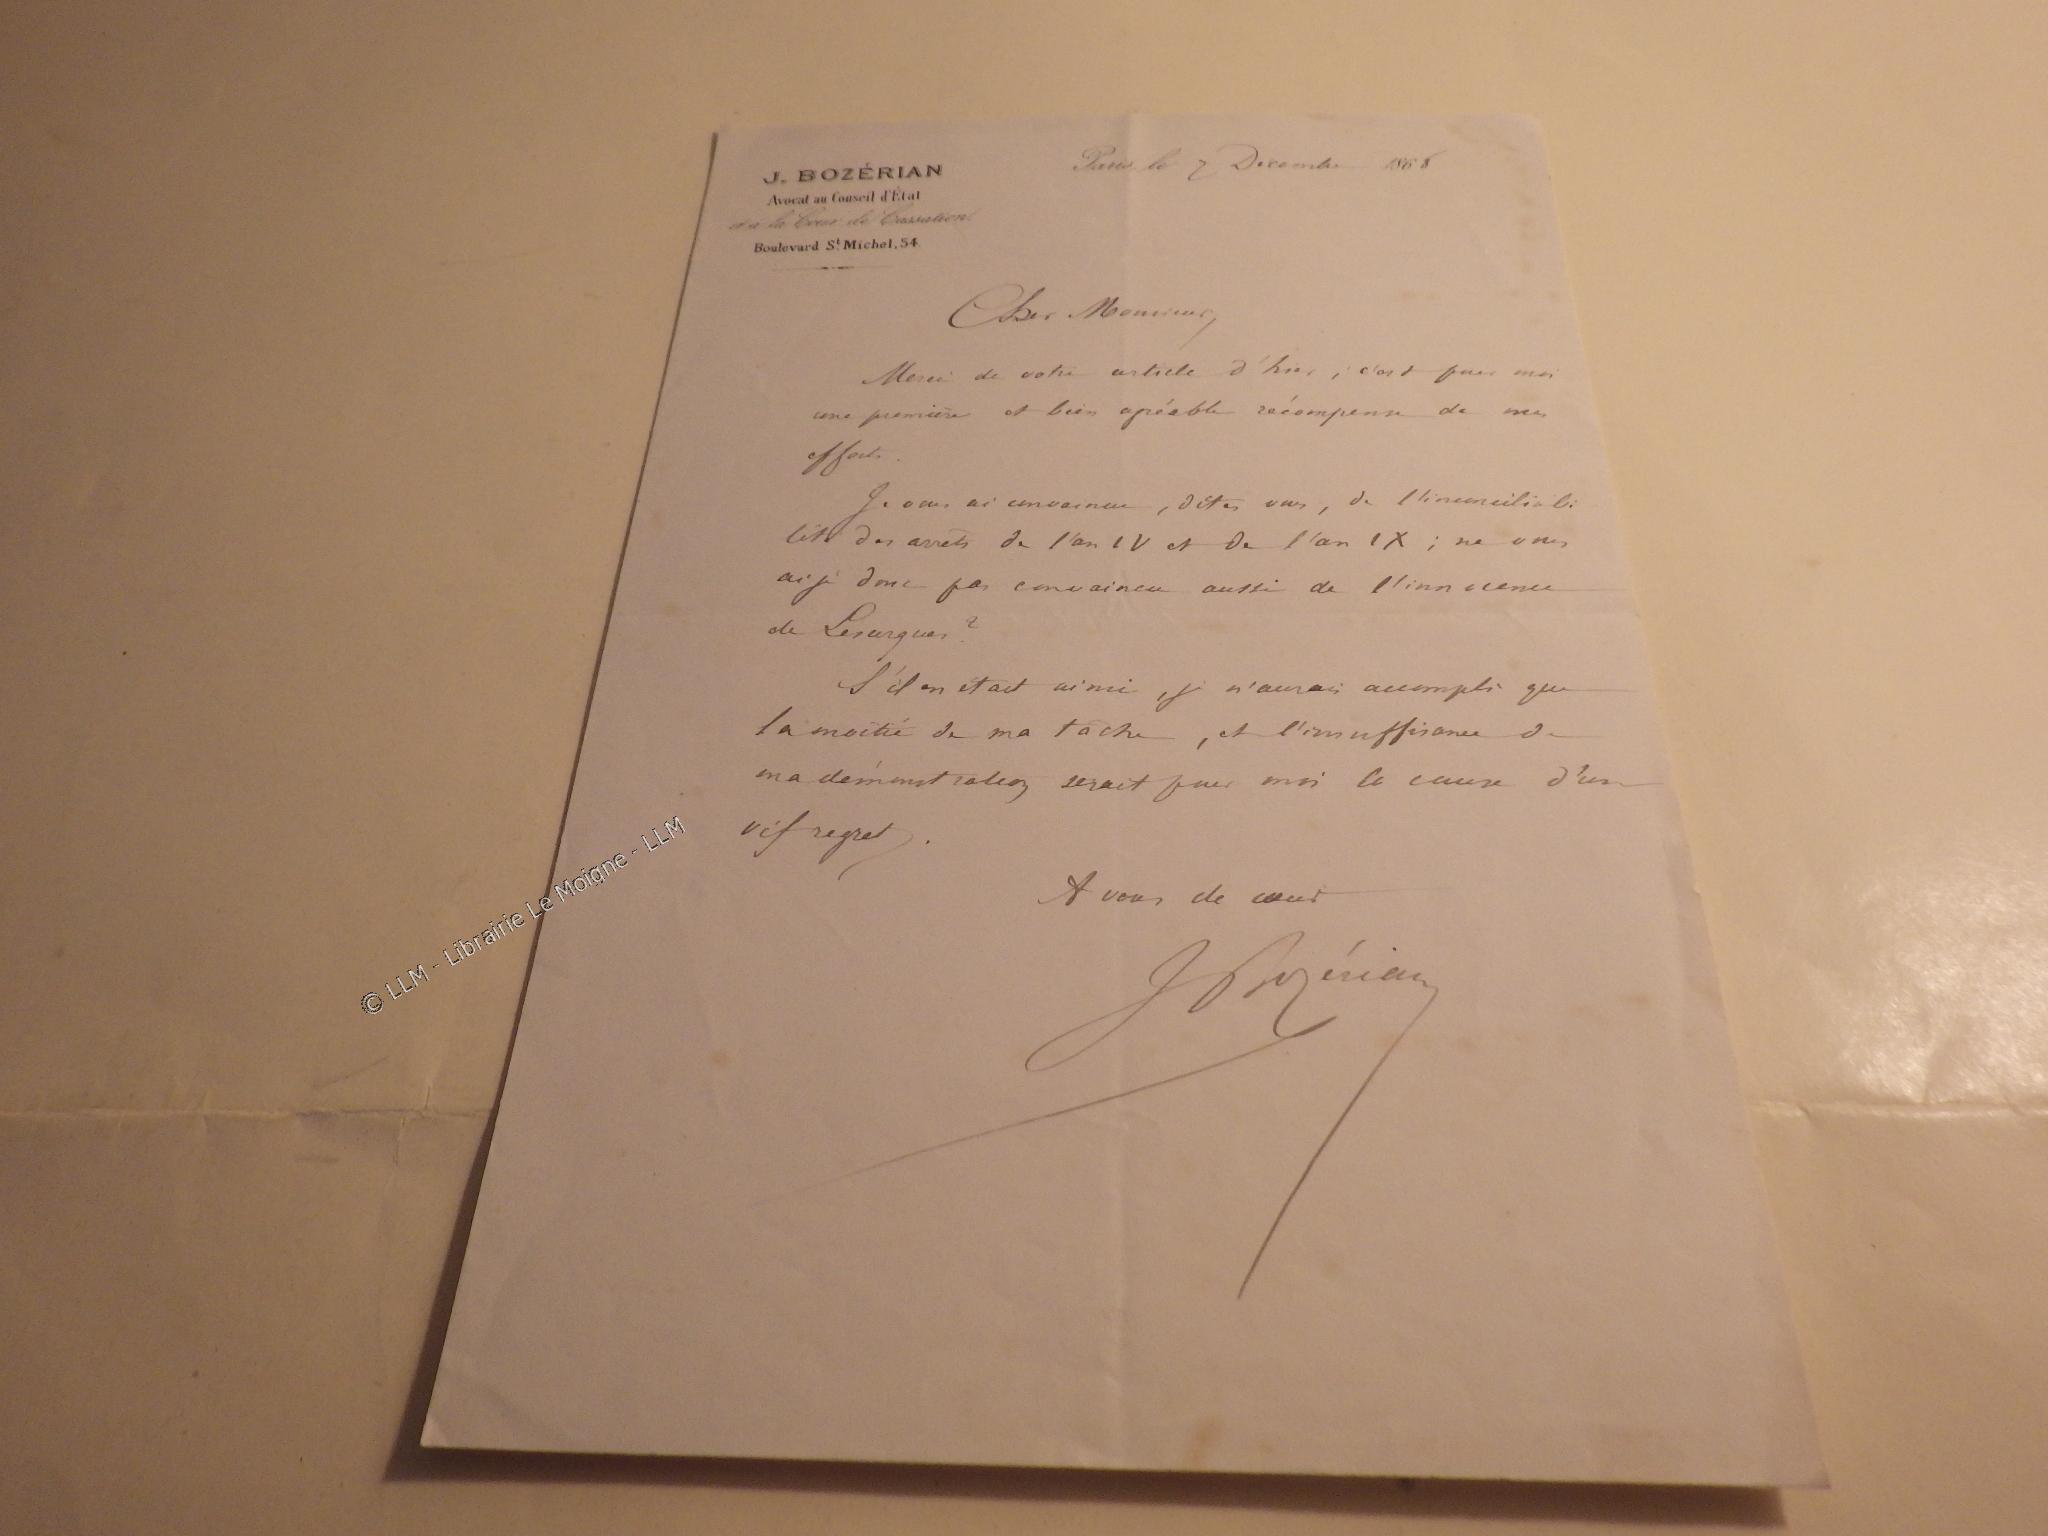 J. BOZÉRIAN
Avocat au Conseil d'État
et à la Cour de Cassation.
Boulevard St. Michel, 54.
Paris, le 7 Décembre 1868
Cher Monsieur,
Merci de votre article d'hier ; c'est pour moi
une première et bien agréable récompense de mes
efforts.
Je vous ai convaincu, dites vous, de l'inconciliabi
lité des arrêts de l'an IV et de l'an IX ; ne vous
ai je donc pas convaincu aussi de l'innocence
de Lesurques ?
S'il en était ainsi, je n'aurais accompli que
la moitié de ma tâche, et l'insuffisance de
ma démonstration serait pour moi la cause d'un
vif regret.
A vous de cœur
J Bozérian
© LLM - Librairie Le Moigne - LLM